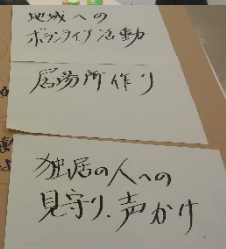 地域への
ボランティア活動
居場所作り
独居の人への
見守り、声かけ